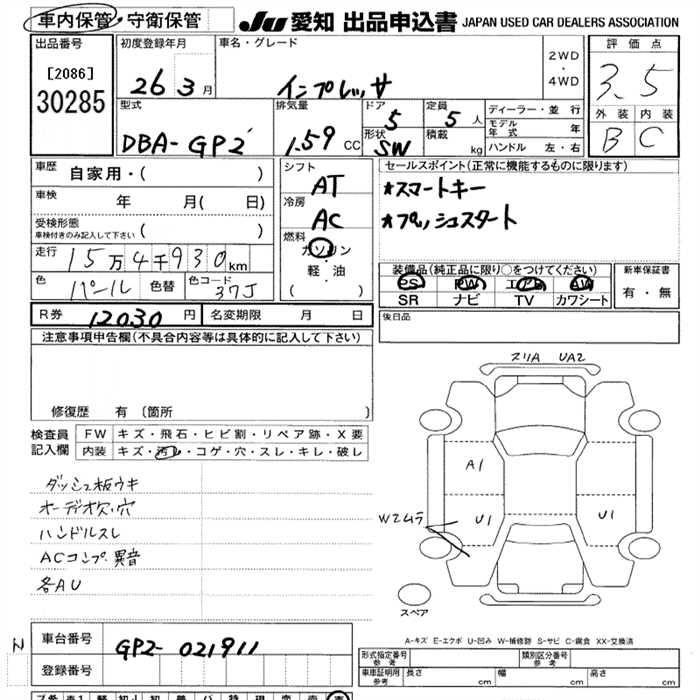 車内保管・守衛保管 JU 愛知 出品申込書 JAPAN USED CAR DEALERS ASSOCIATION
出品番号 初度登録年月 車名・グレード 2WD・4WD 評価点
[2086] 26 3月 インプレッサ 3.5
30285 型式 排気量 ドア 5 定員 5人 ディーラー・並行 外装 内装
モデル年式 年
DBA-GP2 1.59 CC 形状 SW 積載 kg ハンドル 左・右 B C
車歴 自家用・( ) シフト AT セールスポイント(正常に機能するものに限ります)
車検 年 月( 日) 冷房 AC *スマートキー
受検形態 *プッシュスタート
車検付きのみ記入して下さい ( ) 燃料
走行 15万4千930km ガソリン 装備品(純正品に限り○をつけてください) 新車保証書
色 パール 色替 色コード 37J 軽・油 PS PW エアB AW 有・無
( ) SR ナビ TV カワシート
R券 12030円 名変期限 月 日 後日品
注意事項申告欄(不具合内容等は具体的に記入して下さい)
スリA UA2
修復歴 有 (箇所 )
検査員 FW キズ・飛石・ヒビ割・リペア跡・X要
記入欄 内装 キズ・汚レ・コゲ・穴・スレ・キレ・破レ
A1
ダッシュ板ウキ
オーディオ欠・穴
W2ムラ U1 U1
ハンドルスレ
ACコンプ異音
各AU
スペア
A-キズ E-エクボ U-凹み W-補修跡 S-サビ C-腐食 XX-交換済
N 車台番号 GP2-021911 形式指定番号 参考 類別区分番号 参考
登録番号 車庫証明用 参考 長さ cm 幅 cm 高さ cm